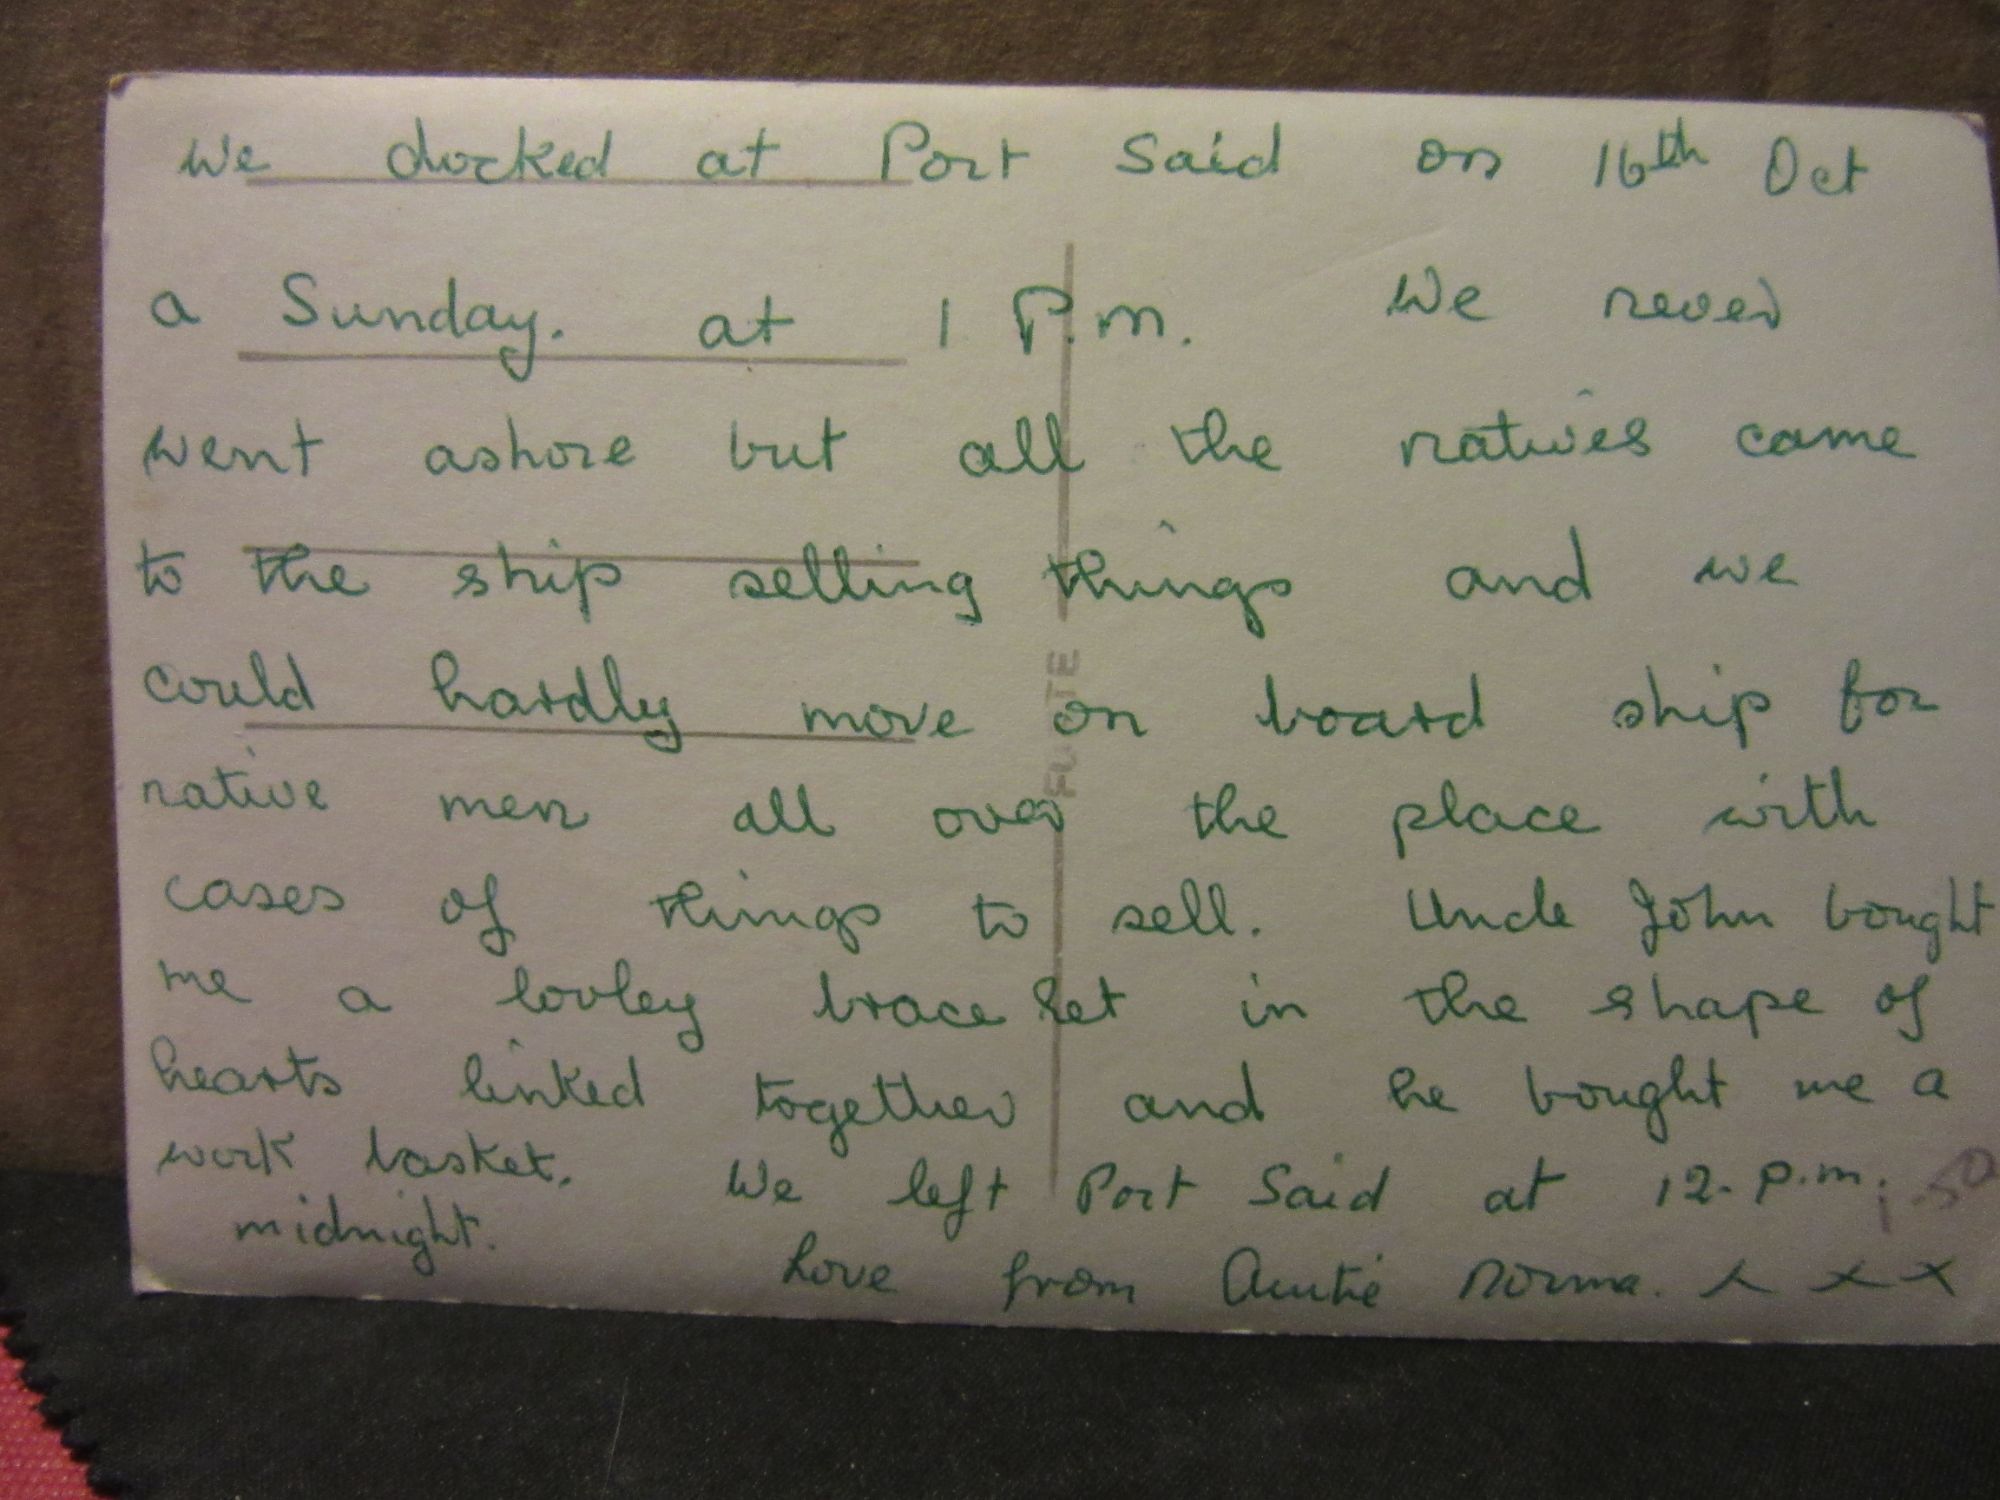 We docked at Port Said on 16th Oct
a Sunday. at 1 P.m. We never
went ashore but all the natives came
to the ship selling things and we
could hardly move on board ship for
native men all over the place with
cases of things to sell. Uncle John bought
me a lovley bracelet in the shape of
hearts linked together and he bought me a
work basket. We left Port Said at 12. p.m.
midnight.
Love from Auntie Norma. x x x
1-50